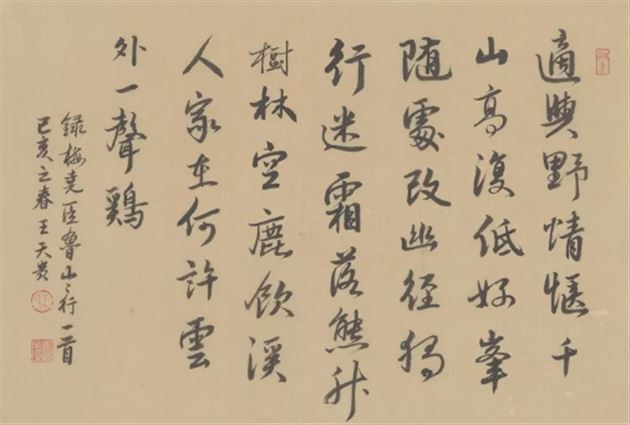 適與野情愜千
山高復低好峯
随處改幽徑獨
行迷霜落熊升
樹林空鹿飲溪
人家在何許雲
外一聲鷄
録梅堯臣魯山〻行一首
己亥之春王天贵